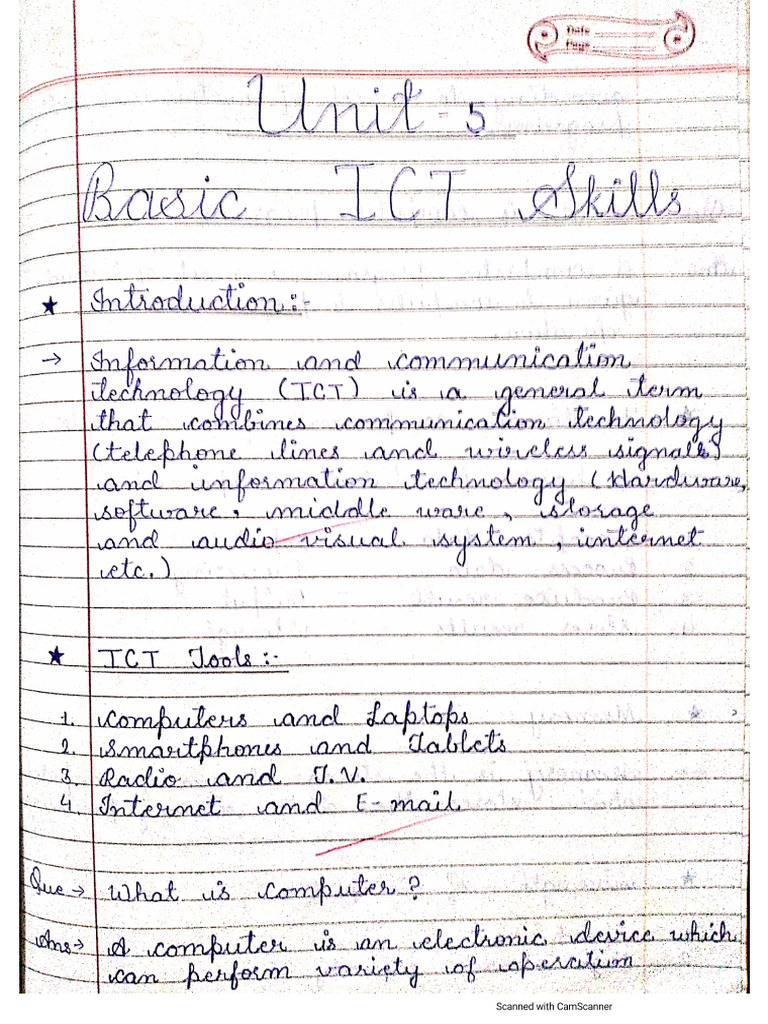 Date
Page
Unit - 5
Basic ICT Skills
★ Introduction :-
→ Information and communication
technology (ICT) is a general term
that combines communication technology
(telephone lines and wireless signals)
and information technology (Hardware,
software, middle ware, storage
and audio visual system, internet
etc.)
★ ICT Tools :-
1. Computers and Laptops
2. Smartphones and Tablets
3. Radio and T.V.
4. Internet and E-mail
Que → What is computer?
Ans → A computer is an electronic device which
can perform variety of operation
Scanned with CamScanner